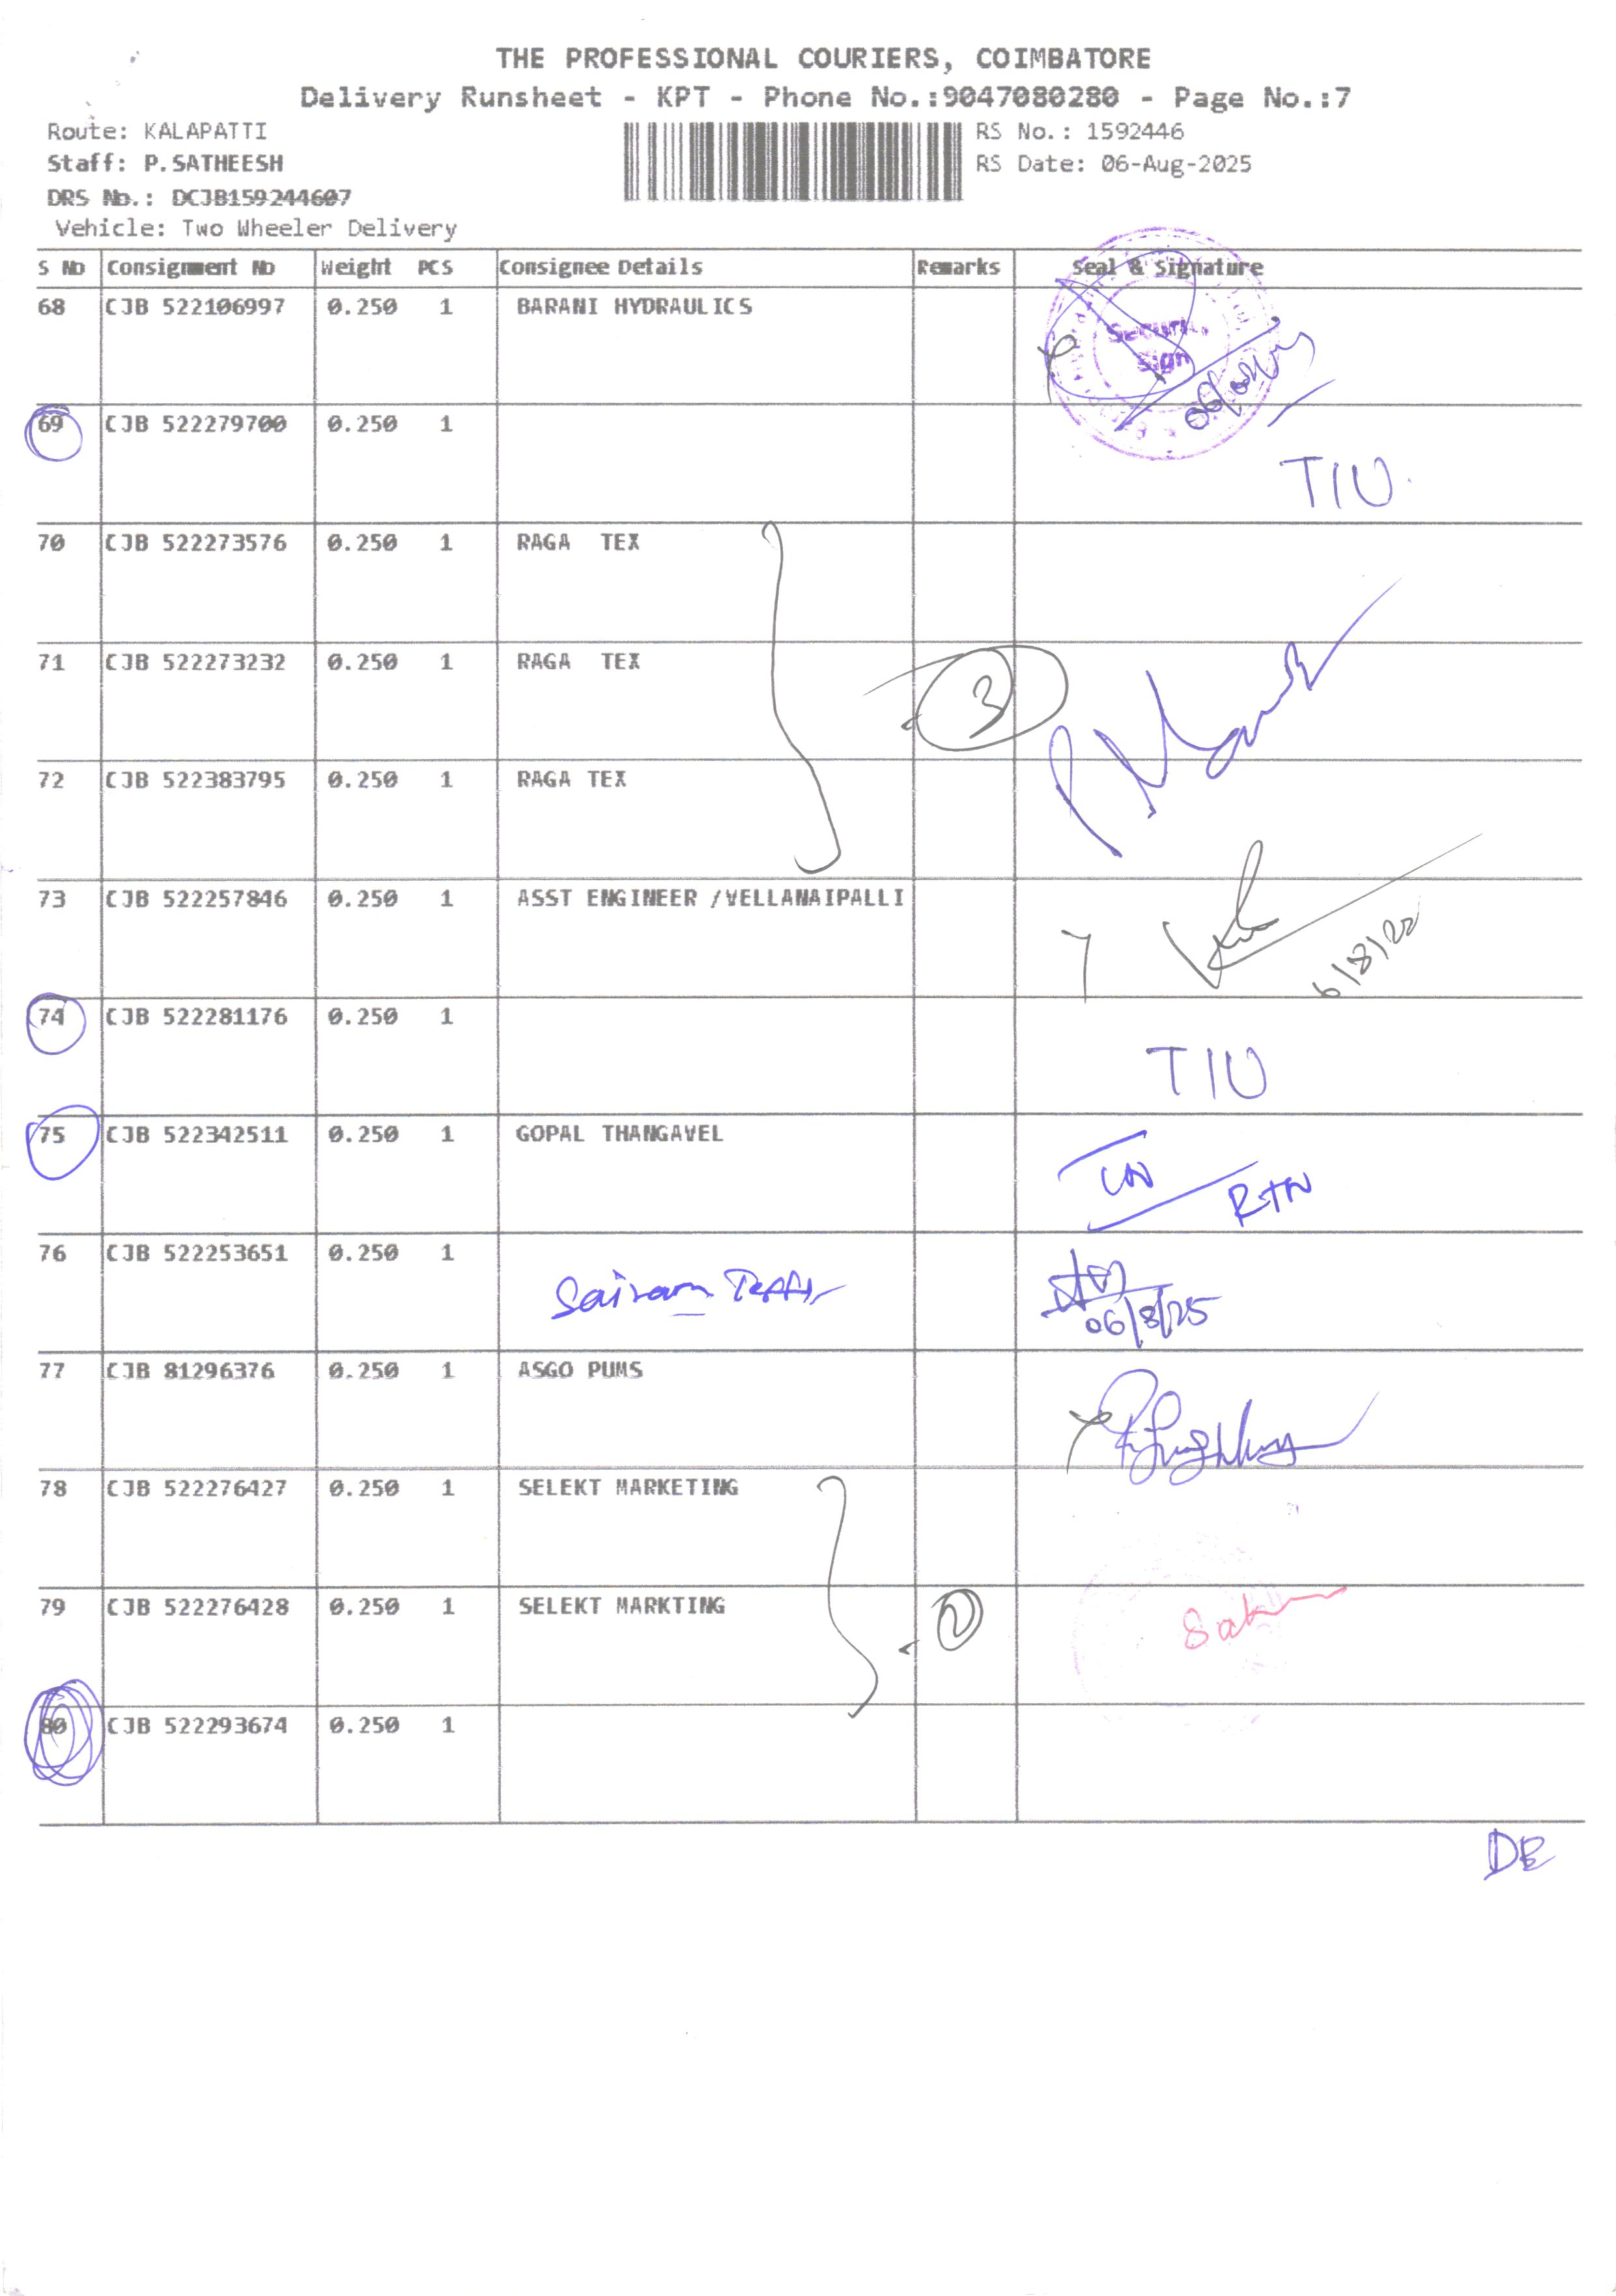 THE PROFESSIONAL COURIERS, COIMBATORE
Delivery Runsheet - KPT - Phone No.:9047080280 - Page No.:7
Route: KALAPATTI
RS No.: 1592446
Staff: P.SATHEESH
RS Date: 06-Aug-2025
DRS No.: DCJB159244607
Vehicle: Two Wheeler Delivery
S No Consignment No Weight PCS Consignee Details Remarks Seal & Signature
68 CJB 522106997 0.250 1 BARANI HYDRAULICS
Sign
69 CJB 522279700 0.250 1
TIU
70 CJB 522273576 0.250 1 RAGA TEX
71 CJB 522273232 0.250 1 RAGA TEX
3
72 CJB 522383795 0.250 1 RAGA TEX
73 CJB 522257846 0.250 1 ASST ENGINEER /VELLANAIPALLI
74 CJB 522281176 0.250 1
TIU
75 CJB 522342511 0.250 1 GOPAL THANGAVEL
RTN
76 CJB 522253651 0.250 1
Sairam
06/8/25
77 CJB 81296376 0.250 1 ASGO PUMS
78 CJB 522276427 0.250 1 SELEKT MARKETING
79 CJB 522276428 0.250 1 SELEKT MARKTING
2
80 CJB 522293674 0.250 1
DE